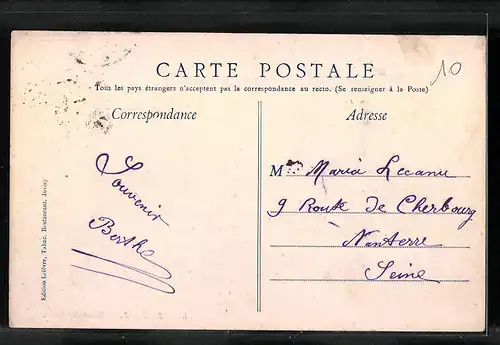 CARTE POSTALE
10
Tous les pays étrangers n'acceptent pas la correspondance au recto. (Se renseigner à la Poste)
Correspondance
Adresse
Souvenir
Berthe
M Maria Lecanu
9 Route de Cherbourg
Nanterre
Seine
Edition Lefèvre, Tabac, Restaurant, Juvisy